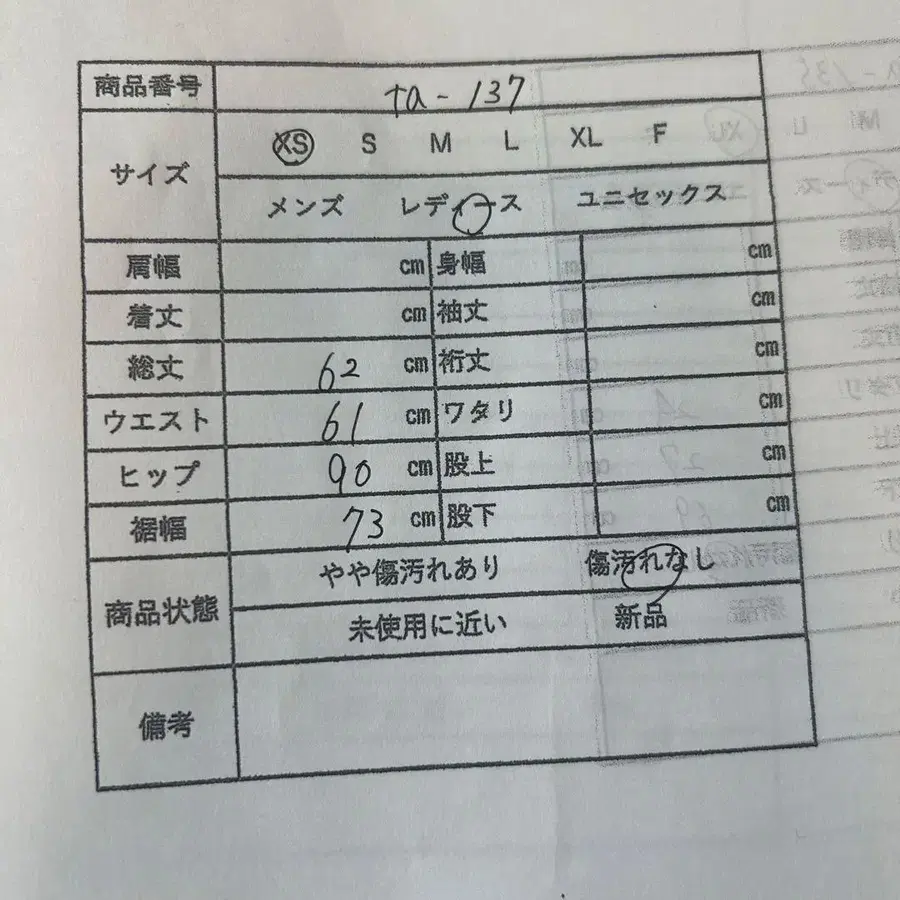 商品番号 ta-137
サイズ XS S M L XL F
メンズ レディース ユニセックス
肩幅 cm 身幅 cm
着丈 cm 袖丈 cm
総丈 62 cm 裄丈 cm
ウエスト 61 cm ワタリ cm
ヒップ 90 cm 股上 cm
裾幅 73 cm 股下 cm
商品状態 やや傷汚れあり 傷汚れなし
未使用に近い 新品
備考